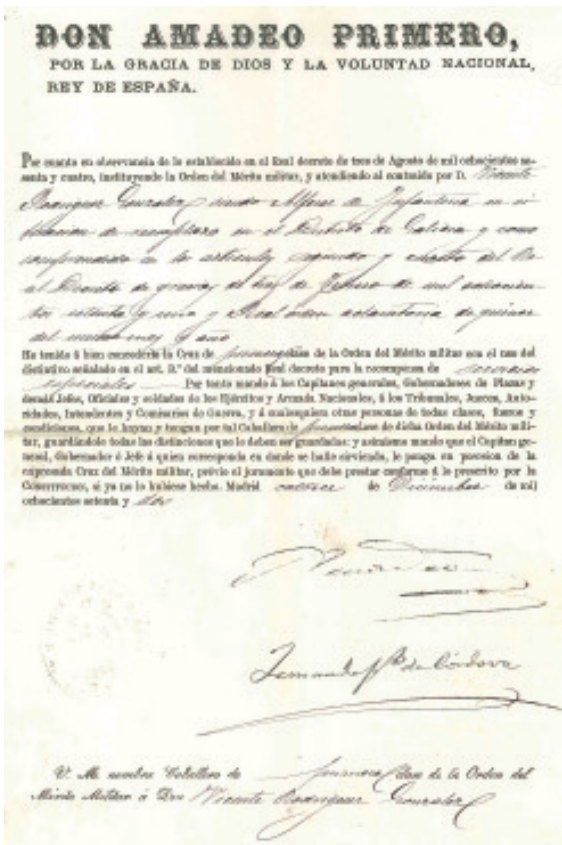 DON AMADEO PRIMERO,
POR LA GRACIA DE DIOS Y LA VOLUNTAD NACIONAL,
REY DE ESPAÑA.
Por cuanto en observancia de lo establecido en el Real decreto de tres de Agosto de mil ochocientos se-
senta y cuatro, instituyendo la Orden del Mérito militar, y atendiendo al contenido por D. Vicente
Rodriguez Gonzalez siendo Alferez de Infanteria en si
tuacion de reemplazo en el Distrito de Galicia y como
comprendido en los articulos segundo y cuarto del Re
al Decreto de gracias de tres de Febrero de mil ochocien-
tos setenta y uno y Real orden aclaratoria de quince
del mismo mes y año
He tenido á bien concederle la Cruz de primera clase de la Orden del Mérito militar con el uso del
distintivo señalado en el art. 3.º del mencionado Real decreto para la recompensa de servicios
especiales Por tanto mando á los Capitanes generales, Gobernadores de Plazas y
demás Jefes, Oficiales y soldados de los Ejércitos y Armada Nacionales, á los Tribunales, Jueces, Auto-
ridades, Intendentes y Comisarios de Guerra, y á cualesquiera otras personas de todas clases, fueros y
condiciones, que le hayan y tengan por tal Caballero de primera clase de dicha Orden del Mérito mili-
tar, guardándole todas las distinciones que le deben ser guardadas; y asimismo mando que el Capitan ge-
neral, Gobernador ó Jefe á quien corresponda en donde se halle sirviendo, le ponga en posesion de la
expresada Cruz del Mérito militar, prévio el juramento que debe prestar conforme á lo prescrito por la
Constitucion, si ya no lo hubiese hecho. Madrid catorce de Diciembre de mil
ochocientos setenta y dos
Amadeo
Fernando Fz. de Córdova
V. M. nombra Caballero de primera clase de la Orden del
Mérito Militar á Don Vicente Rodriguez Gonzalez